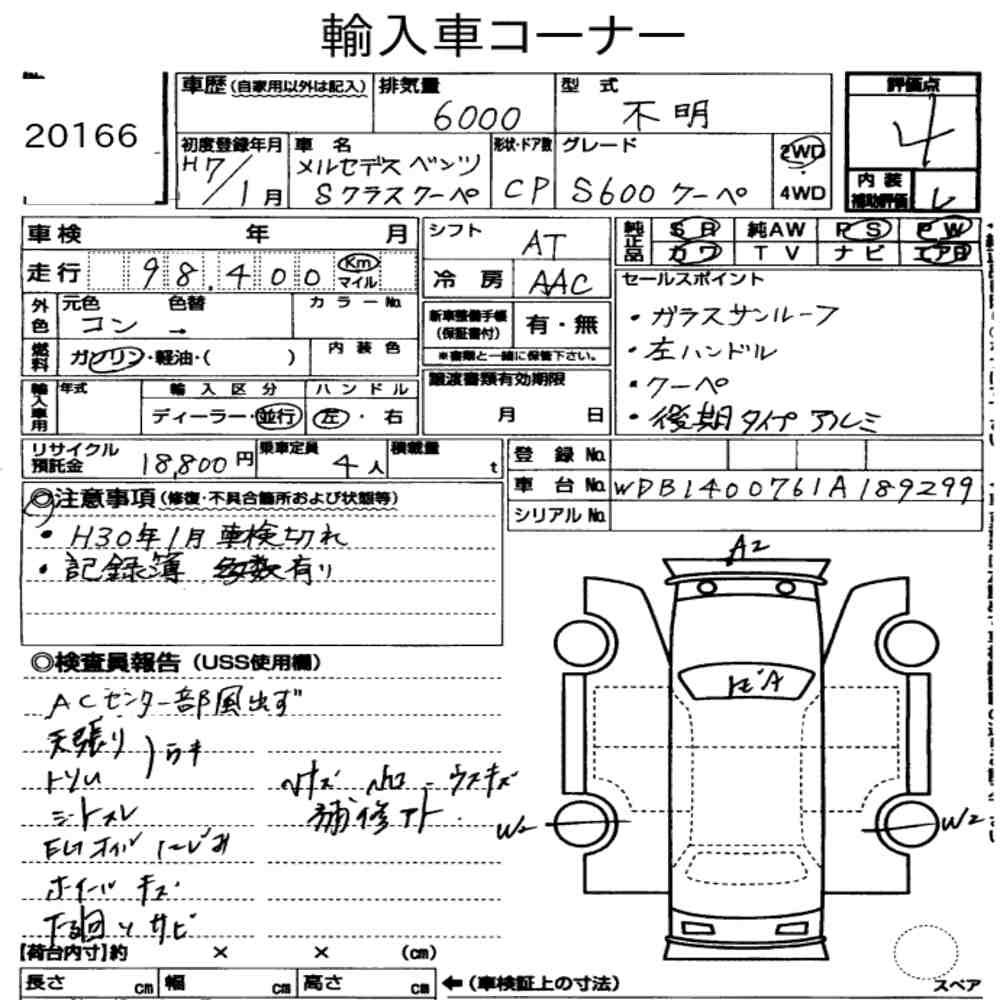 輸入車コーナー
20166
車歴 (自家用以外は記入) 排気量 型式 評価点
6000 不明 4
初度登録年月 車名 形状・ドア数 グレード 2WD
H7/1月 メルセデスベンツ Sクラスクーペ CP S600クーペ 4WD
内装補助評価
車検 年 月 シフト AT 純正品 SR 純AW PS PW
走行 98,400 Km マイル 冷房 AAC カワ TV ナビ エアB
外色 元色 色替 カラーNo.
コン →
新車整備手帳(保証書付) 有・無
※書類と一緒に保管下さい。
セールスポイント
・ガラスサンルーフ
・左ハンドル
・クーペ
・後期タイプアルミ
燃料 ガソリン・軽油・( ) 内装色
輸入車用 年式 輸入区分 ハンドル
ディーラー・並行 左・右
譲渡書類有効期限
月 日
リサイクル預託金 18,800円 乗車定員 4人 積載量 t
登録No.
車台No. WDB1400761A189299
シリアルNo.
◎注意事項 (修復・不具合箇所および状態等)
・H30年1月車検切れ
・記録簿 多数有り
A2
◎検査員報告 (USS使用欄)
ACセンター部風出ず
天張り
トリム
シートスレ
EGオイルにじみ
ホイールキズ
下回りサビ
補修アト
W2
W2
【荷台内寸】約 × × (cm)
長さ cm 幅 cm 高さ cm ←(車検証上の寸法)
スペア